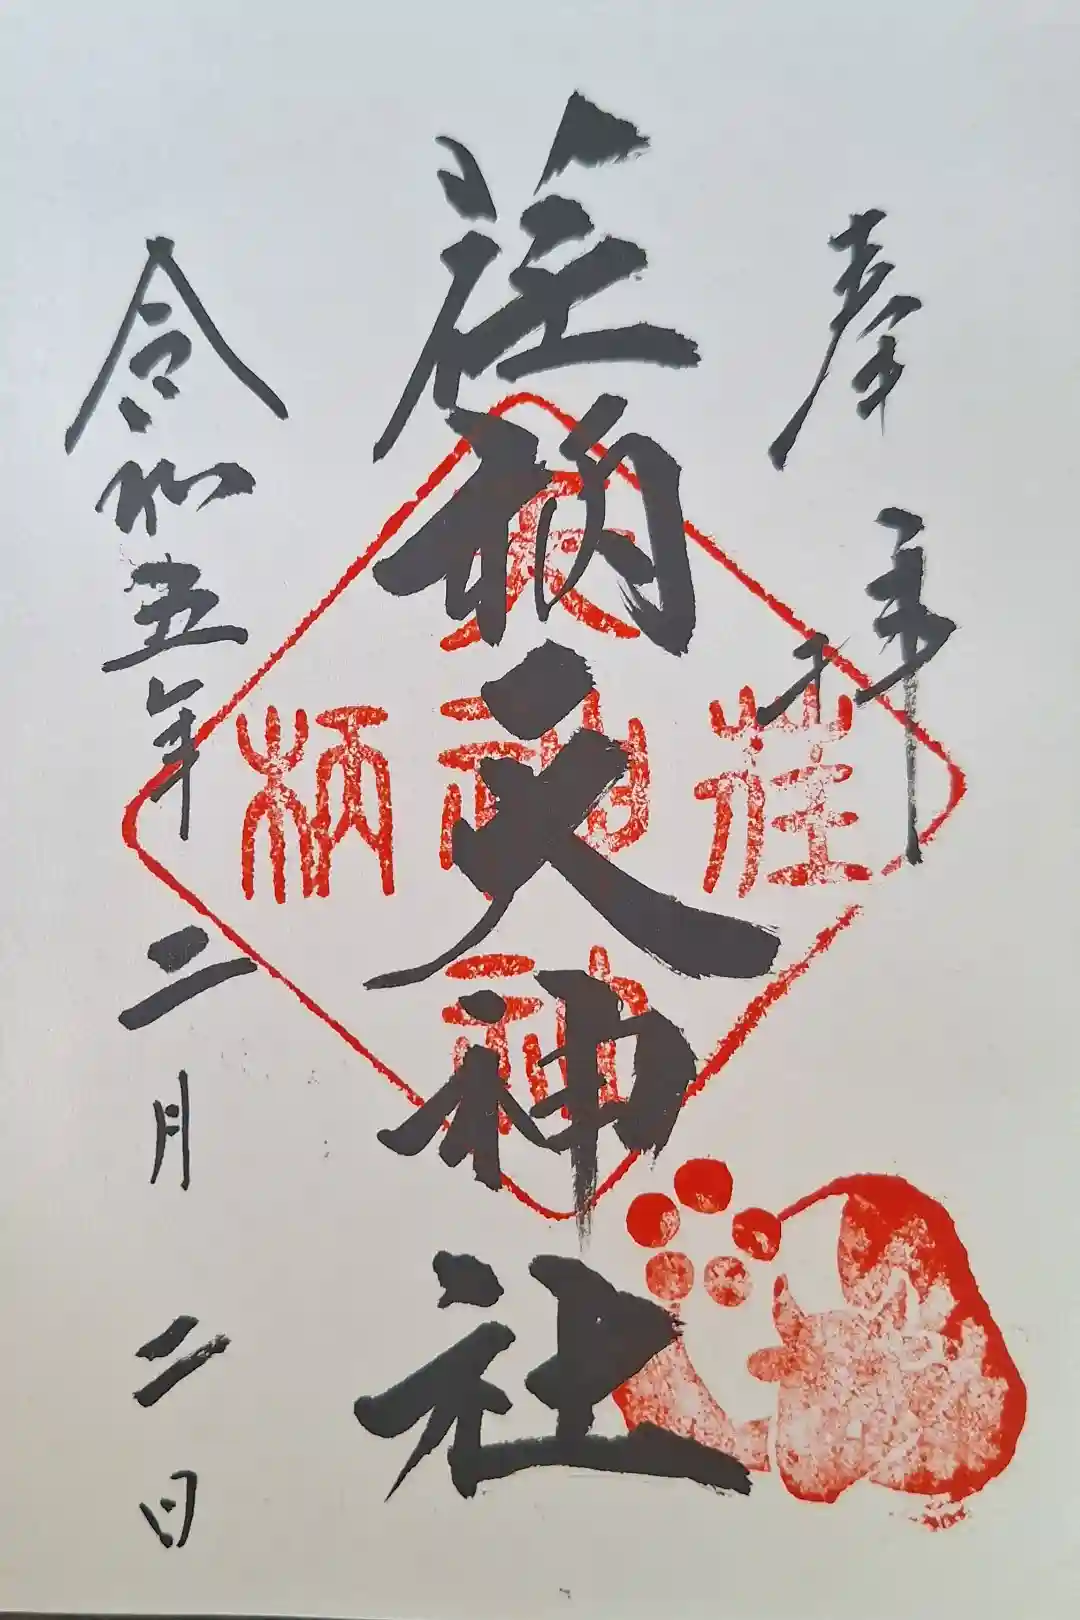 奉拝
荏柄天神社
令和五年二月二日
天
荏神柄
神